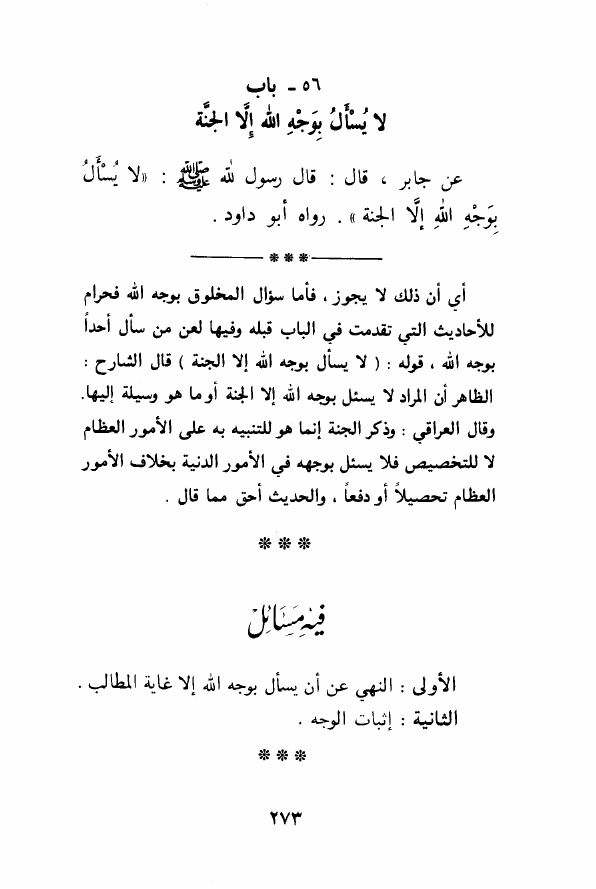 ٥٦ - باب
لا يُسْأَلُ بِوَجْهِ الله إِلَّا الجنَّة
عن جابر ، قال : قال رسول لله ﷺ : «لا يُسْأَلُ
بِوَجْهِ اللهِ إلَّا الجنة » . رواه أبو داود .
***
أي أن ذلك لا يجوز ، فأما سؤال المخلوق بوجه الله فحرام
للأحاديث التي تقدمت في الباب قبله وفيها لعن من سأل أحداً
بوجه الله ، قوله : ( لا يسأل بوجه الله إلا الجنة ) قال الشارح :
الظاهر أن المراد لا يسئل بوجه الله إلا الجنة أو ما هو وسيلة إليها.
وقال العراقي : وذكر الجنة إنما هو للتنبيه به على الأمور العظام
لا للتخصيص فلا يسئل بوجهه في الأمور الدنية بخلاف الأمور
العظام تحصيلاً أو دفعاً ، والحديث أحق مما قال .
***
فيه مسائل
الأولى : النهي عن أن يسأل بوجه الله إلا غاية المطالب .
الثانية : إثبات الوجه .
***
٢٧٣